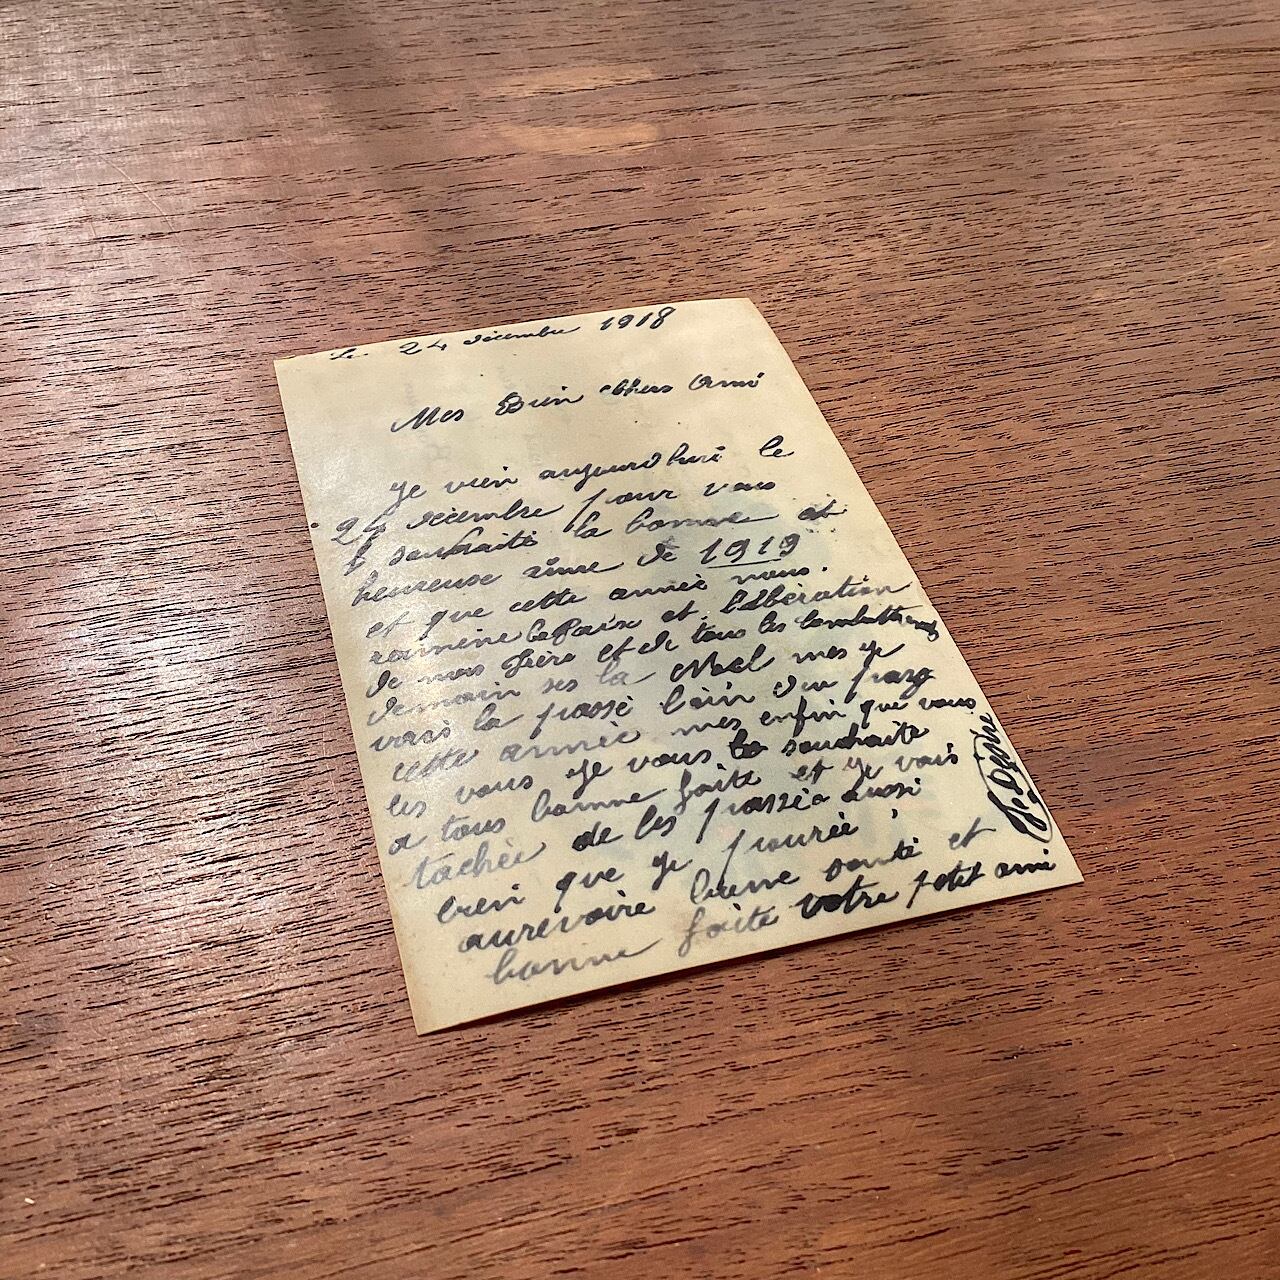 Le 24 décembre 1918
Mes Bien Chers Ami
Je vien aujourdhui le
24 décembre pour vous
souhaité la bonne et
heureuse année de 1919
et que cette année nous
ramène la Paix et libération
de mes frère et de tous les combattants
demain ses la Noel mes je
vais la passé loin du
cette année mes enfin que vous
les vous je vous la souhaite
a tous bonne faite et je vais
tachée de les passée aussi
bien que je pourée
aurevoire bonne santé et
bonne faite votre petit ami